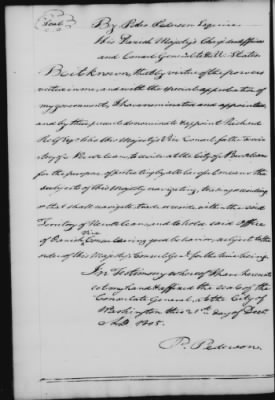 Seal
By Peder Pederson Esquire
His Danish Majesty's Chargé d'affaires
and Consul General to the U. States
Be it known, that by virtue of the powers
vested in me, and with the special approbation of
my government, I have nominated and appointed
and by these presents do nominate & appoint Richard
Relf Esqr to be His Majesty's Vice Consul for the Terri-
tory of New Orleans, to reside at the City of New Orleans
for the purpose of protecting by all lawful means the
subjects of His Majesty navigating, trading, residing
or that shall navigate, trade, reside within the said
Territory of New Orleans, and to hold said office
of Danish Vice Consul during good behavior, subject to the
orders of His Majesty's Consul Genl. for the time being.
In Testimony whereof I have hereunto
set my hand & affixed the seal of the
Consulate General, at the City of
Washington this 21st day of Decr.
A.D. 1805.
P. Pederson.